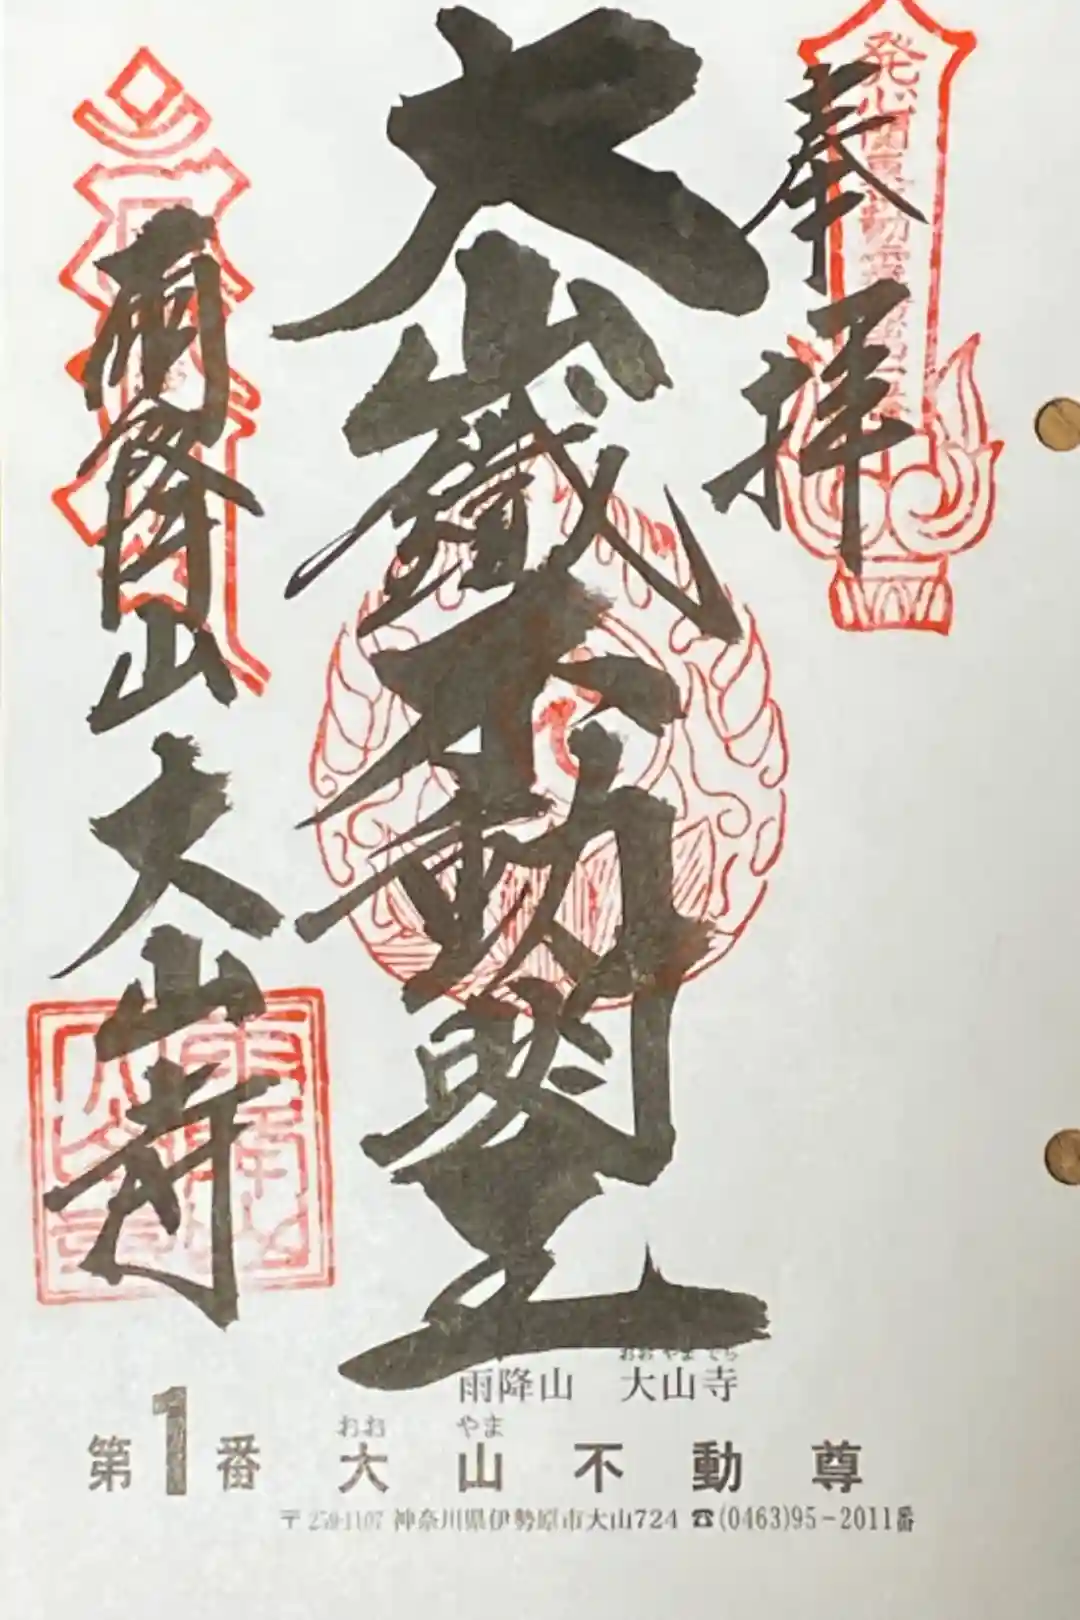 奉拝
大山鐵不動明王
雨降山
大山寺
おおやまでら
雨降山 大山寺
おお やま
第1番 大山不動尊
〒259-1107 神奈川県伊勢原市大山724 ☎(0463)95-2011番